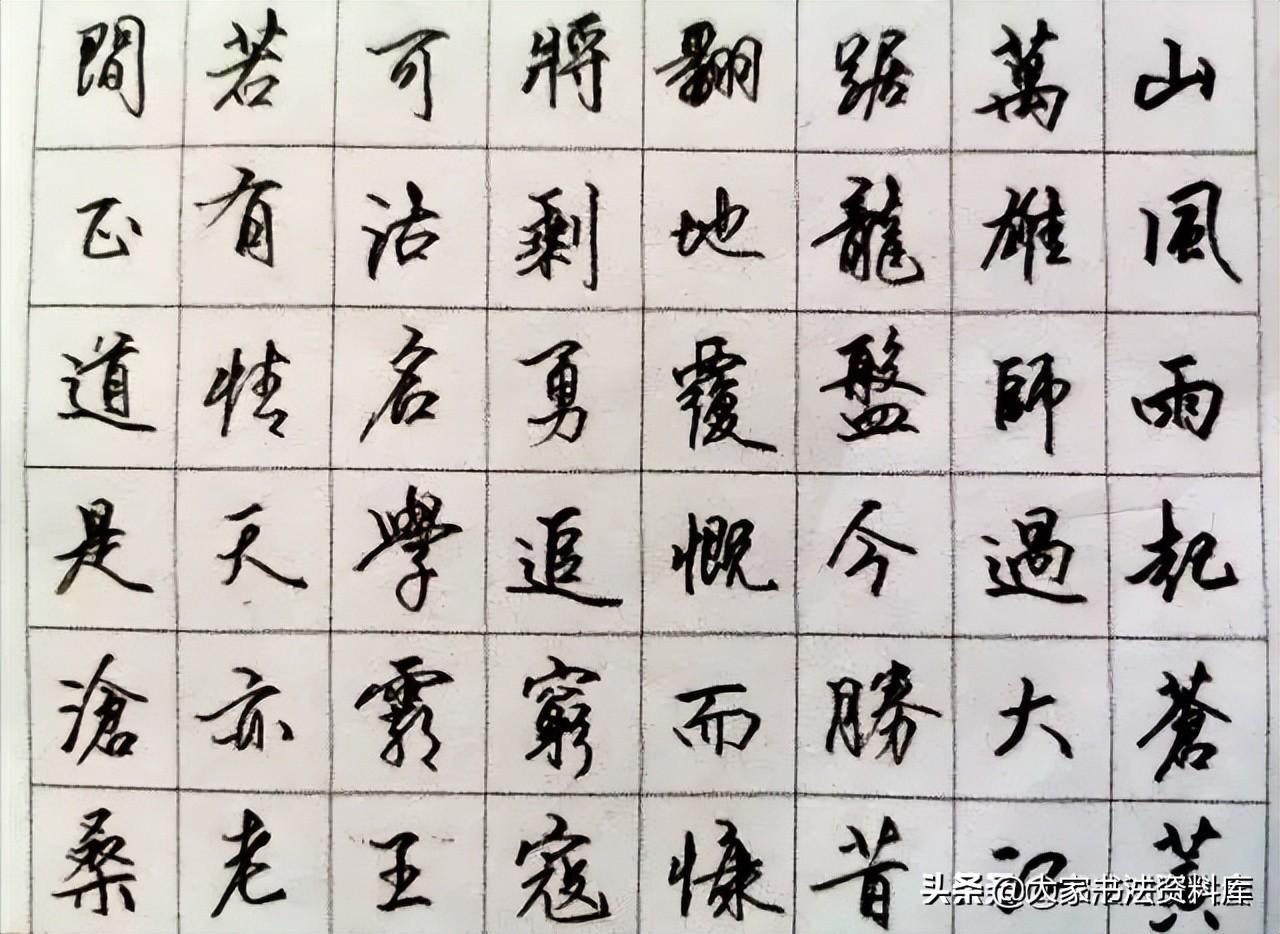 山風雨起蒼黃
萬雄師過大江
踞龍盤今勝昔
翻地覆慨而慷
將剩勇追窮寇
可沽名學霸王
若有情天亦老
間正道是滄桑
头条@大家书法资料库